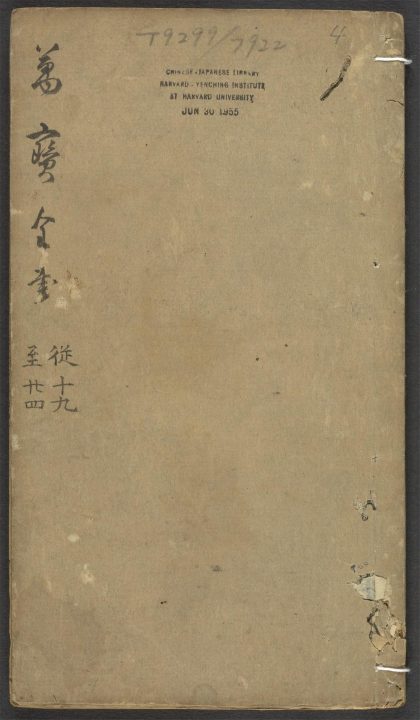 T9299/3922
4
CHINESE-JAPANESE LIBRARY
HARVARD-YENCHING INSTITUTE
AT HARVARD UNIVERSITY
JUN 30 1955
萬寶全書
從十九
至廿四